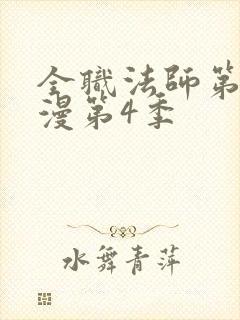 全職法師第
漫第4季
水舞青萍